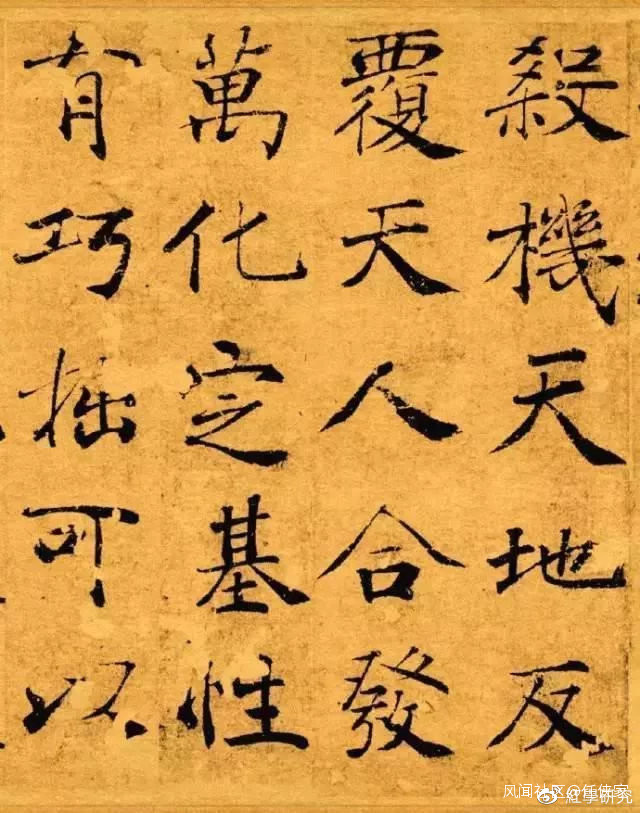 殺機天地反
覆天人合發
萬化定基性
有巧拙可以
风闻社区
@紅學研究